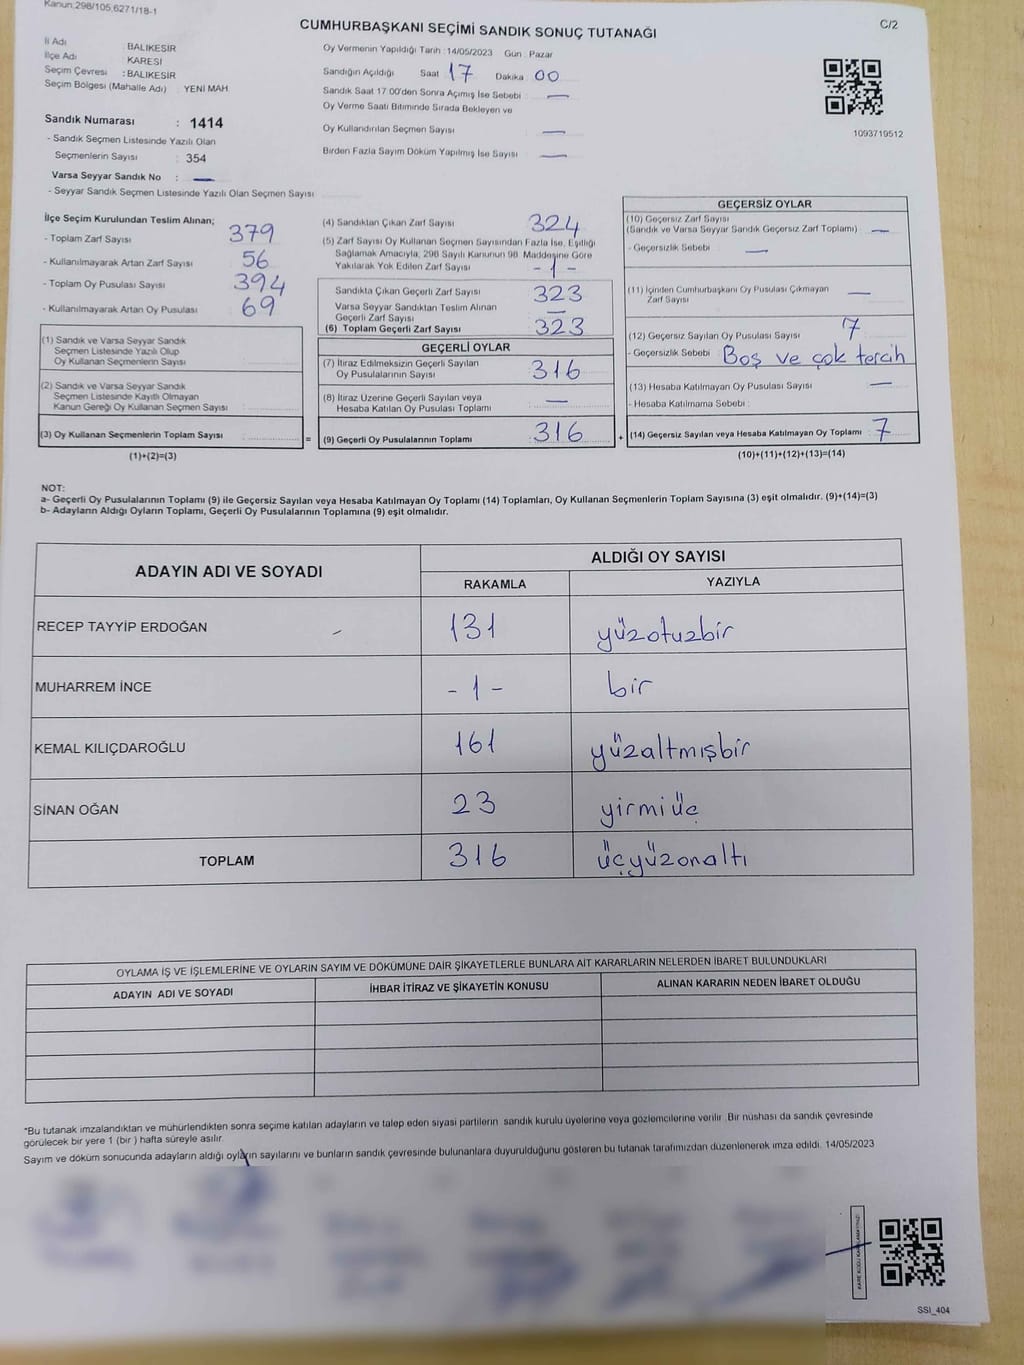 Kanun:298/105,6271/18-1
CUMHURBAŞKANI SEÇİMİ SANDIK SONUÇ TUTANAĞI
C/2
İl Adı : BALIKESİR
İlçe Adı : KARESİ
Seçim Çevresi : BALIKESİR
Seçim Bölgesi (Mahalle Adı) : YENİ MAH
Sandık Numarası : 1414
- Sandık Seçmen Listesinde Yazılı Olan
Seçmenlerin Sayısı : 354
Varsa Seyyar Sandık No : —
- Seyyar Sandık Seçmen Listesinde Yazılı Olan Seçmen Sayısı
Oy Vermenin Yapıldığı Tarih : 14/05/2023 Gün : Pazar
Sandığın Açıldığı Saat 17 Dakika 00
Sandık Saat 17:00'den Sonra Açımış İse Sebebi : —
Oy Verme Saati Bitiminde Sırada Bekleyen ve
Oy Kullandırılan Seçmen Sayısı —
Birden Fazla Sayım Döküm Yapılmış İse Sayısı —
1093719512
İlçe Seçim Kurulundan Teslim Alınan;
- Toplam Zarf Sayısı 379
- Kullanılmayarak Artan Zarf Sayısı 56
- Toplam Oy Pusulası Sayısı 394
- Kullanılmayarak Artan Oy Pusulası 69
(1) Sandık ve Varsa Seyyar Sandık
Seçmen Listesinde Yazılı Olup
Oy Kullanan Seçmenlerin Sayısı
(2) Sandık ve Varsa Seyyar Sandık
Seçmen Listesinde Kayıtlı Olmayan
Kanun Gereği Oy Kullanan Seçmen Sayısı
(3) Oy Kullanan Seçmenlerin Toplam Sayısı =
(1)+(2)=(3)
(4) Sandıktan Çıkan Zarf Sayısı 324
(5) Zarf Sayısı Oy Kullanan Seçmen Sayısından Fazla İse, Eşitliği
Sağlamak Amacıyla, 298 Sayılı Kanunun 98. Maddesine Göre
Yakılarak Yok Edilen Zarf Sayısı -1-
Sandıkta Çıkan Geçerli Zarf Sayısı 323
Varsa Seyyar Sandıktan Teslim Alınan
Geçerli Zarf Sayısı —
(6) Toplam Geçerli Zarf Sayısı 323
GEÇERLİ OYLAR
(7) İtiraz Edilmeksizin Geçerli Sayılan
Oy Pusulalarının Sayısı 316
(8) İtiraz Üzerine Geçerli Sayılan veya
Hesaba Katılan Oy Pusulası Toplamı —
(9) Geçerli Oy Pusulalarının Toplamı 316 +
GEÇERSİZ OYLAR
(10) Geçersiz Zarf Sayısı
(Sandık ve Varsa Seyyar Sandık Geçersiz Zarf Toplamı) —
- Geçersizlik Sebebi —
(11) İçinden Cumhurbaşkanı Oy Pusulası Çıkmayan
Zarf Sayısı —
(12) Geçersiz Sayılan Oy Pusulası Sayısı 7
- Geçersizlik Sebebi Boş ve çok tercih
(13) Hesaba Katılmayan Oy Pusulası Sayısı —
- Hesaba Katılmama Sebebi :
(14) Geçersiz Sayılan veya Hesaba Katılmayan Oy Toplamı : 7
(10)+(11)+(12)+(13)=(14)
NOT:
a- Geçerli Oy Pusulalarının Toplamı (9) ile Geçersiz Sayılan veya Hesaba Katılmayan Oy Toplamı (14) Toplamları, Oy Kullanan Seçmenlerin Toplam Sayısına (3) eşit olmalıdır. (9)+(14)=(3)
b- Adayların Aldığı Oyların Toplamı, Geçerli Oy Pusulalarının Toplamına (9) eşit olmalıdır.
ADAYIN ADI VE SOYADI
ALDIĞI OY SAYISI
RAKAMLA YAZIYLA
RECEP TAYYİP ERDOĞAN 131 yüzotuzbir
MUHARREM İNCE -1- bir
KEMAL KILIÇDAROĞLU 161 yüzaltmışbir
SİNAN OĞAN 23 yirmiüç
TOPLAM 316 üçyüzonaltı
OYLAMA İŞ VE İŞLEMLERİNE VE OYLARIN SAYIM VE DÖKÜMÜNE DAİR ŞİKAYETLERLE BUNLARA AİT KARARLARIN NELERDEN İBARET BULUNDUKLARI
ADAYIN ADI VE SOYADI İHBAR İTİRAZ VE ŞİKAYETİN KONUSU ALINAN KARARIN NEDEN İBARET OLDUĞU
*Bu tutanak imzalandıktan ve mühürlendikten sonra seçime katılan adayların ve talep eden siyasi partilerin sandık kurulu üyelerine veya gözlemcilerine verilir. Bir nüshası da sandık çevresinde
görülecek bir yere 1 (bir ) hafta süreyle asılır.
Sayım ve döküm sonucunda adayların aldığı oyların sayılarını ve bunların sandık çevresinde bulunanlara duyurulduğunu gösteren bu tutanak tarafımızdan düzenlenerek imza edildi. 14/05/2023
SSİ_404